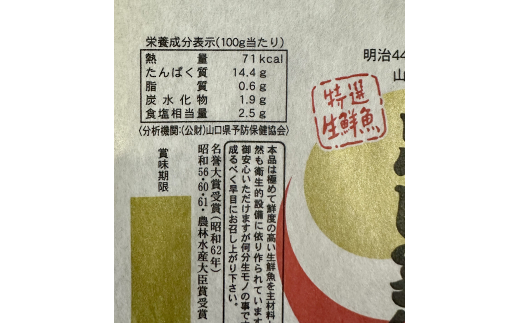 栄養成分表示(100g当たり)
熱量 71kcal
たんぱく質 14.4g
脂質 0.6g
炭水化物 1.9g
食塩相当量 2.5g
〈分析機関:(公財)山口県予防保健協会〉
明治44
山
特選
生鮮魚
本品は極めて鮮度の高い生鮮魚を主材料と
然も衛生的設備に依り作られています
御安心いただけますが何分生モノの事で
成るべく早目にお召し上がり下さい。
名誉大賞受賞(昭和62年)
昭和56・60・61・農林水産大臣賞受賞
賞味期限